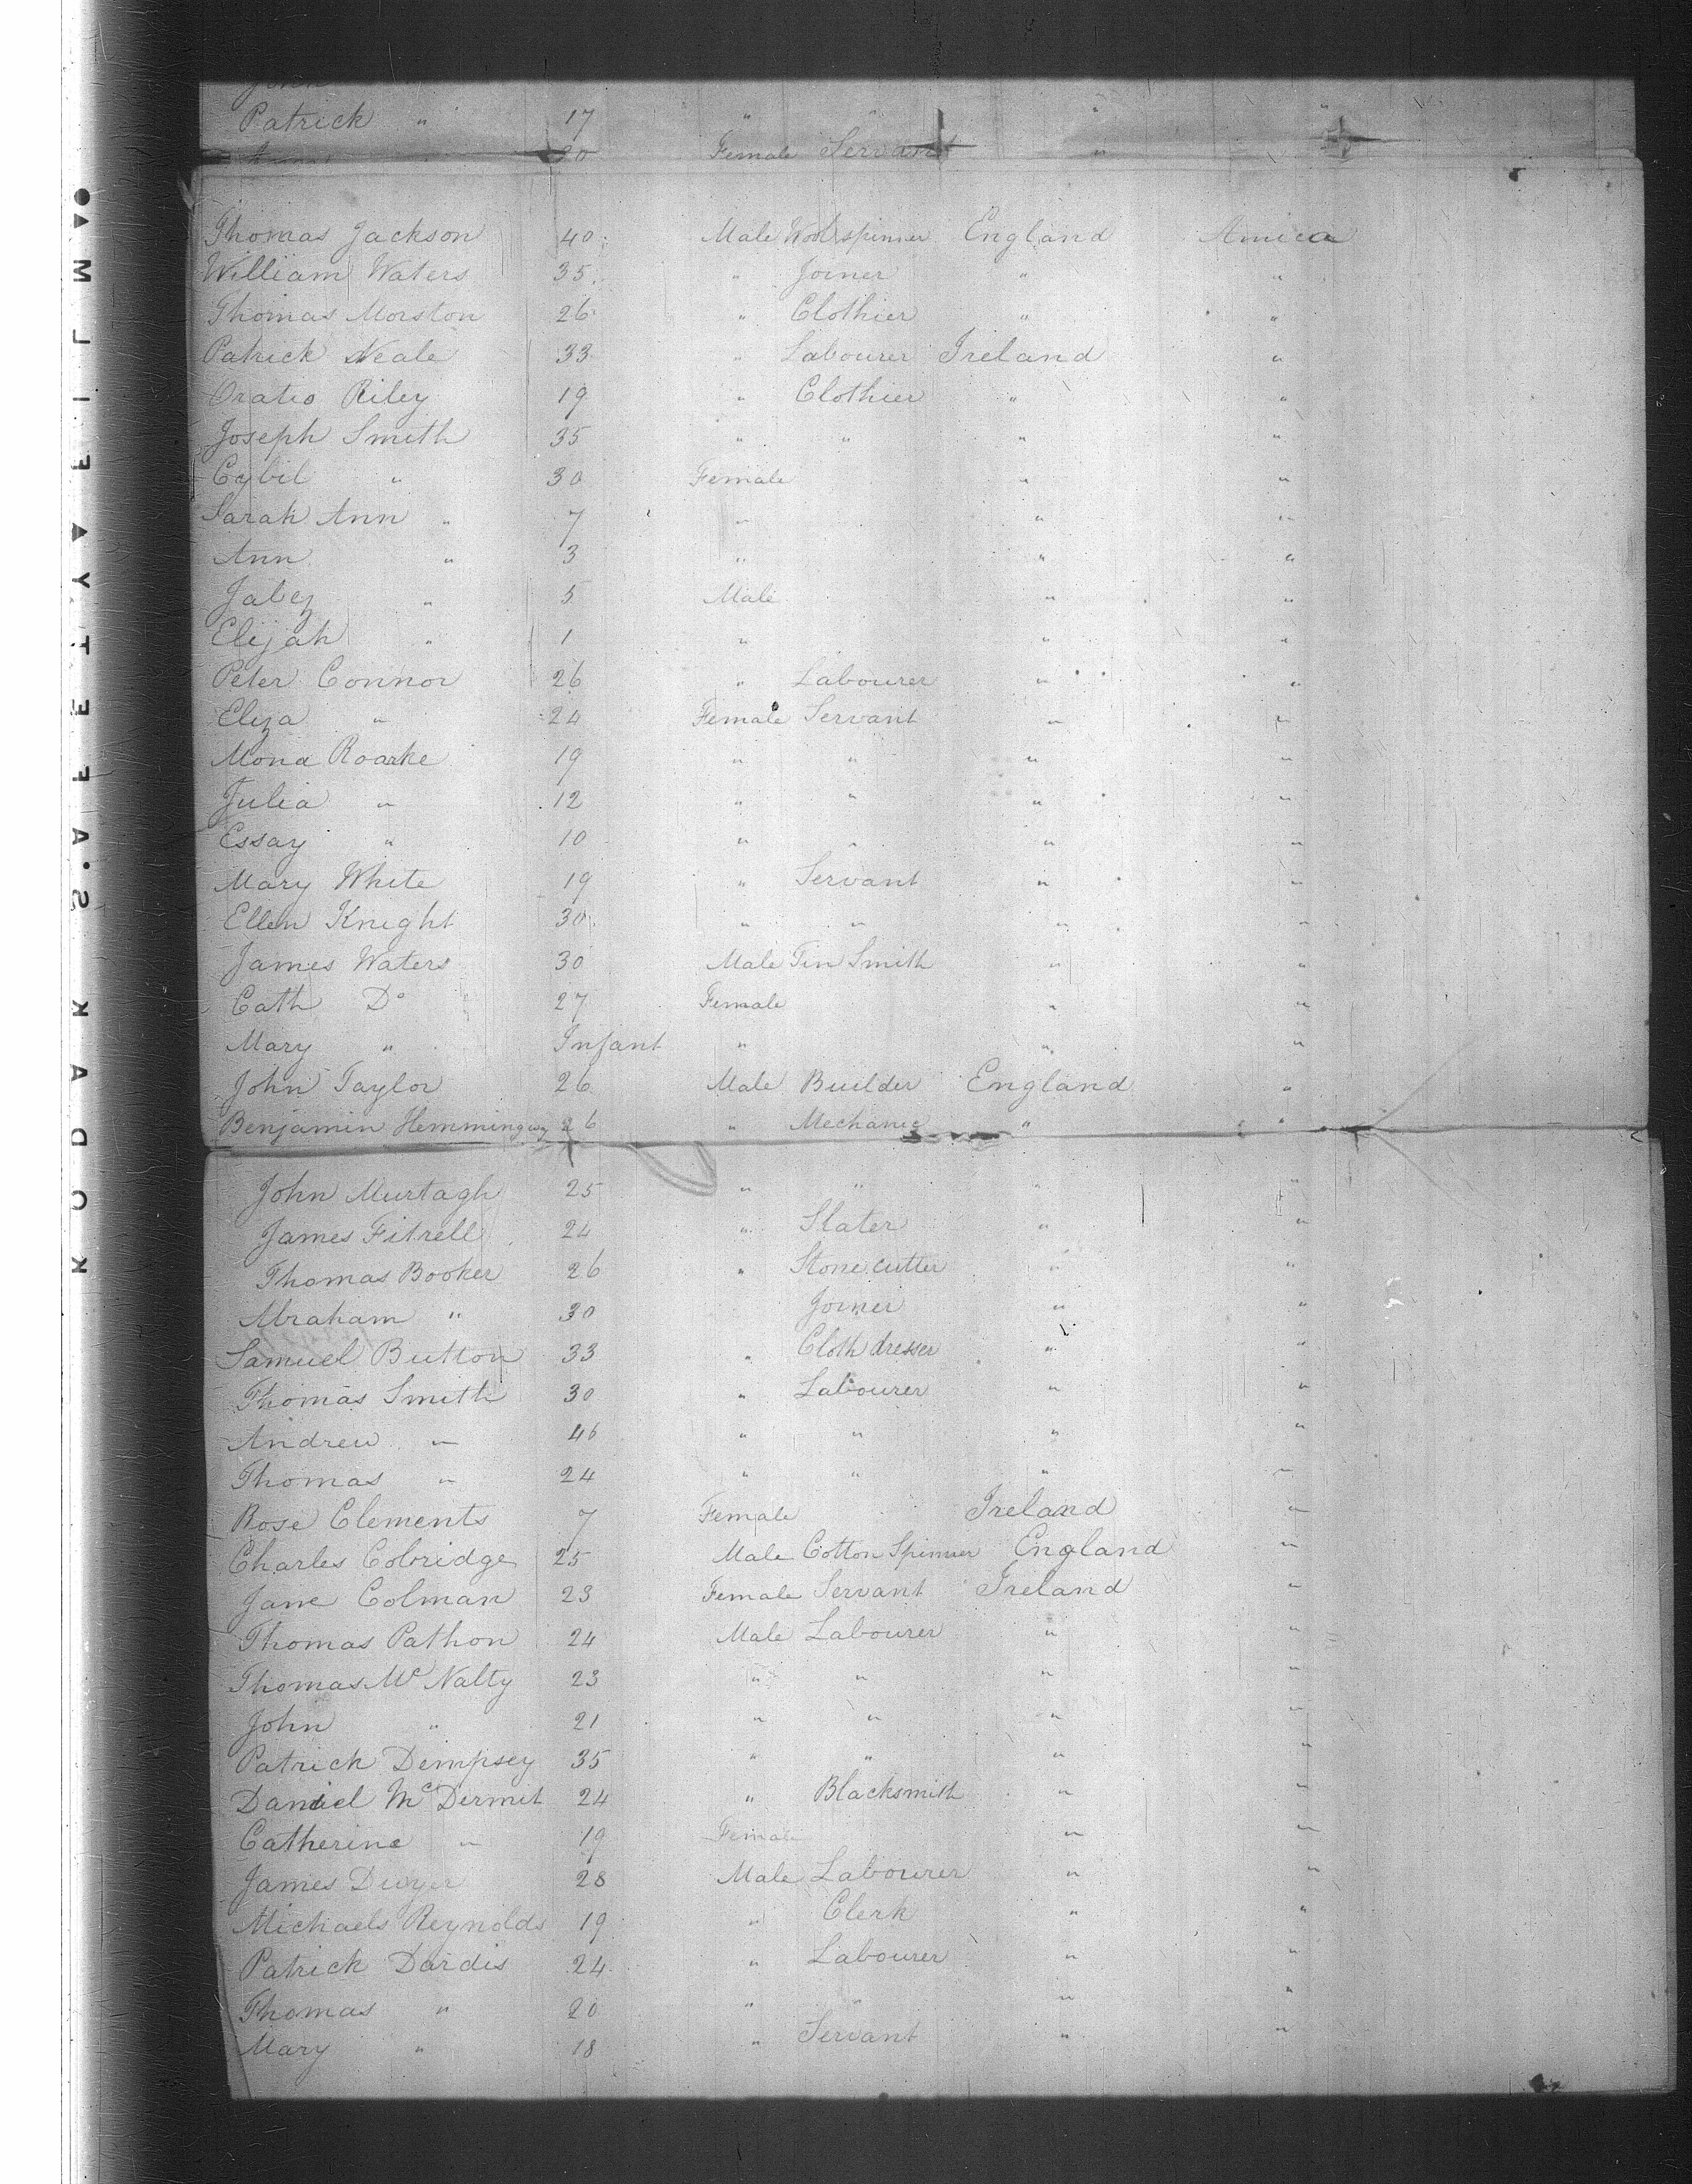 John
Patrick " 17 " " " "
20 Female Servant "
Thomas Jackson 40 Male Wool spinner England Amica
William Waters 35 " Joiner " "
Thomas Morston 26 " Clothier " "
Patrick Neale 33 " Labourer Ireland "
Oratio Riley 19 " Clothier " "
Joseph Smith 35 " " " "
Cybil " 30 Female " "
Sarah Ann " 7 " " "
Ann " 3 " " "
Jabez " 5 Male " "
Elijah " 1 " " "
Peter Connor 26 " Labourer " "
Eliza " 24 Female Servant " "
Mona Roarke 19 " " " "
Julia " 12 " " " "
Essay " 10 " " " "
Mary White 19 " Servant " "
Ellen Knight 30 " " " "
James Waters 30 Male Tin Smith " "
Cath Do 27 Female " "
Mary " Infant " " "
John Taylor 26 Male Builder England "
Benjamin Hemmingway 26 " Mechanic " "
John Murtagh 25 " " " "
James Fitrell 24 " Slater " "
Thomas Booker 26 " Stone cutter " "
Abraham " 30 Joiner " "
Samuel Button 33 " Cloth dresser " "
Thomas Smith 30 " Labourer " "
Andrew " 46 " " " "
Thomas " 24 " " " "
Rose Clements 7 Female Ireland "
Charles Colbridge 25 Male Cotton Spinner England "
Jane Colman 23 Female Servant Ireland "
Thomas Pathon 24 Male Labourer " "
Thomas Mc Nalty 23 " " " "
John " 21 " " " "
Patrick Dempsey 35 " " " "
Daniel McDermit 24 " Blacksmith " "
Catherine " 19 Female " "
James Dwyer 28 Male Labourer " "
Michaels Reynolds 19 " Clerk " "
Patrick Dardis 24 " Labourer " "
Thomas " 20 " " " "
Mary " 18 " Servant " "
KODAK SAFETY FILM